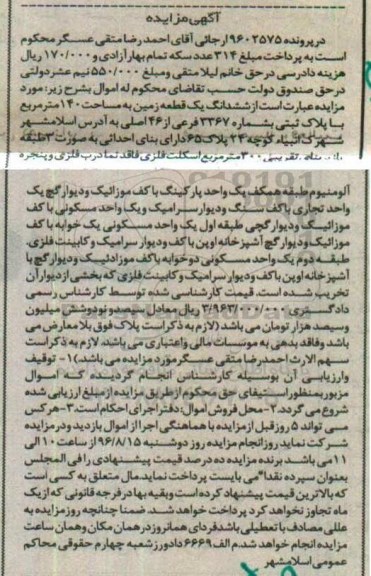 آگهی مزایده
در پرونده ۹۶۰۲۵۷۵ ارجائی آقای احمد رضا متقی عسگر محکوم
است به پرداخت مبلغ ۳۱۴ عدد سکه تمام بهار آزادی و ۱۷۰/۰۰۰ ریال
هزینه دادرسی در حق خانم لیلا متقی ومبلغ ۵۵۰/۰۰۰ نیم عشر دولتی
در حق صندوق دولت حسب تقاضای محکوم له اموال بشرح زیر: مورد
مزایده عبارت است از ششدانگ یک قطعه زمین به مساحت ۱۴۰ متر مربع
با پلاک ثبتی بشماره ۳۳۶۷ فرعی از ۴۶ اصلی به آدرس اسلامشهر
شهرک انبیاء کوچه ۲۴ پلاک ۶۵ دارای بنای احداثی به صورت ۳ طبقه
تقریبی ۳۰۰ متر مربع اسکلت فلزی فاقد نما درب فلزی و پنجره
آلومنیوم طبقه همکف یک واحد پارکینگ با کف موزائیک و دیوار گچ یک
واحد تجاری با کف سنگ و دیوار سرامیک و یک واحد مسکونی با کف
موزائیک و دیوار گچی طبقه اول یک واحد مسکونی یک خوابه با کف
موزائیک و دیوار گچ آشپزخانه اوپن با کف و دیوار سرامیک و کابینت فلزی.
طبقه دوم یک واحد مسکونی دو خوابه با کف موزادئیک و دیوار گچ با
آشپزخانه اوپن با کف و دیوار سرامیک و کابینت فلزی که بخشی از دیوار آن
تخریب شده است. قیمت کارشناسی شده توسط کارشناس رسمی
دادگستری ۳/۹۶۳/۰۰۰/۰۰۰ ریال معادل سیصد و نود و شش میلیون
وسیصد هزار تومان می باشد (لازم به ذکر است پلاک فوق بلا معارض می
باشد وفاقد بدهی به موسسات مالی و اعتباری می باشد. لازم به ذکر است
سهم الارث احمد رضا متقی عسگر مورد مزایده می باشد.) ۱- توقیف
وارزیابی آن بوسیله کارشناس انجام گردیده که اموال
مزبور بمنظور استیفای حق محکوم از طریق مزایده از مبلغ ارزیابی شده
شروع می گردد. ۲- محل فروش اموال: دفتر اجرای احکام است. ۳- هرکس
می تواند ۵ روز قبل از مزایده با هماهنگی اجرا از اموال بازدید و در مزایده
شرکت نماید روز انجام مزایده روز دوشنبه ۹۶/۸/۱۵ از ساعت ۱۰ الی
۱۱ می باشد. برنده مزایده ده درصد قیمت پیشنهادی را فی المجلس
بعنوان سپرده نقدا" می بایست پرداخت نماید. مال متعلق به کسی است
که بالاترین قیمت پیشنهاد کرده است وبقیه بها در فرجه قانونی که از یک
ماه تجاوز نخواهد کرد پرداخت خواهد شد. ضمنا چنانچه روز مزایده به
عللی مصادف با تعطیلی باشد فردای همانروز در همان مکان وهمان ساعت
مزایده انجام خواهد شد. م الف ۶۶۶۹ دادورز شعبه چهارم حقوقی محاکم
عمومی اسلامشهر